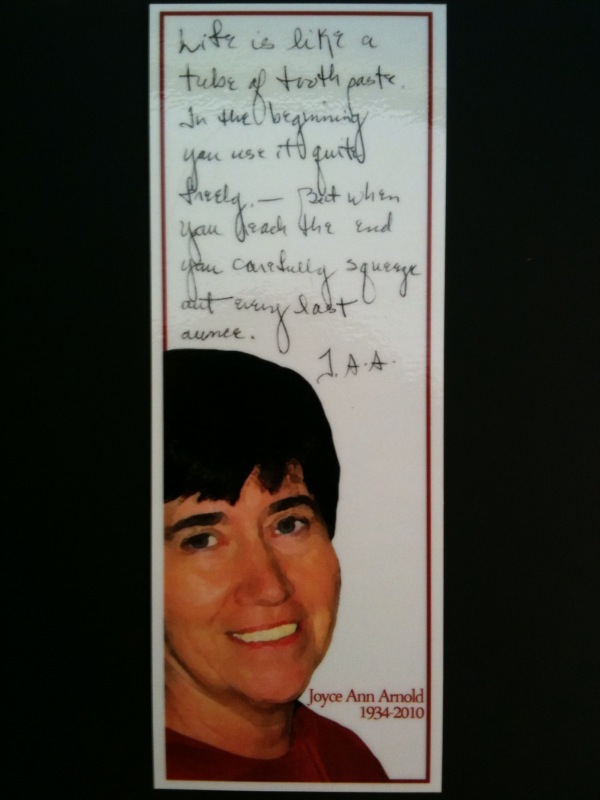 Life is like a
tube of tooth paste.
In the beginning
you use it quite
freely. — But when
you reach the end
you carefully squeeze
out every last
ounce.
J. A. A.
Joyce Ann Arnold
1934-2010